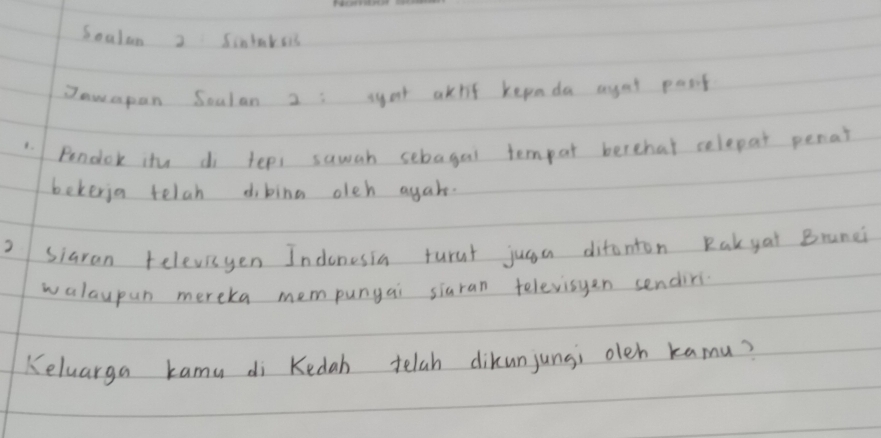 Soalan 2 : Sintaksis
Jawapan Soalan 2 : ayat aktif kepada ayat pasif.
1. Pondok itu di tepi sawah sebagai tempat berehat selepat penat
bekerja telah dibina oleh ayah.
2 Siaran televisyen Indonesia turut juga ditonton Rakyat Brunei
walaupun mereka mempunyai siaran televisyen sendiri.
Keluarga kamu di Kedah telah dikunjungi oleh kamu?